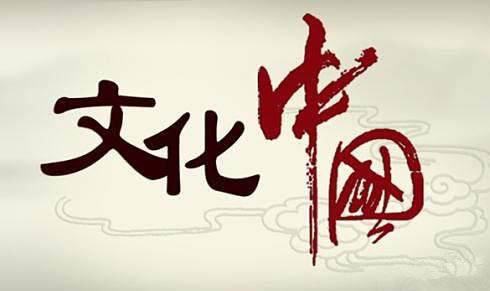 文化中國